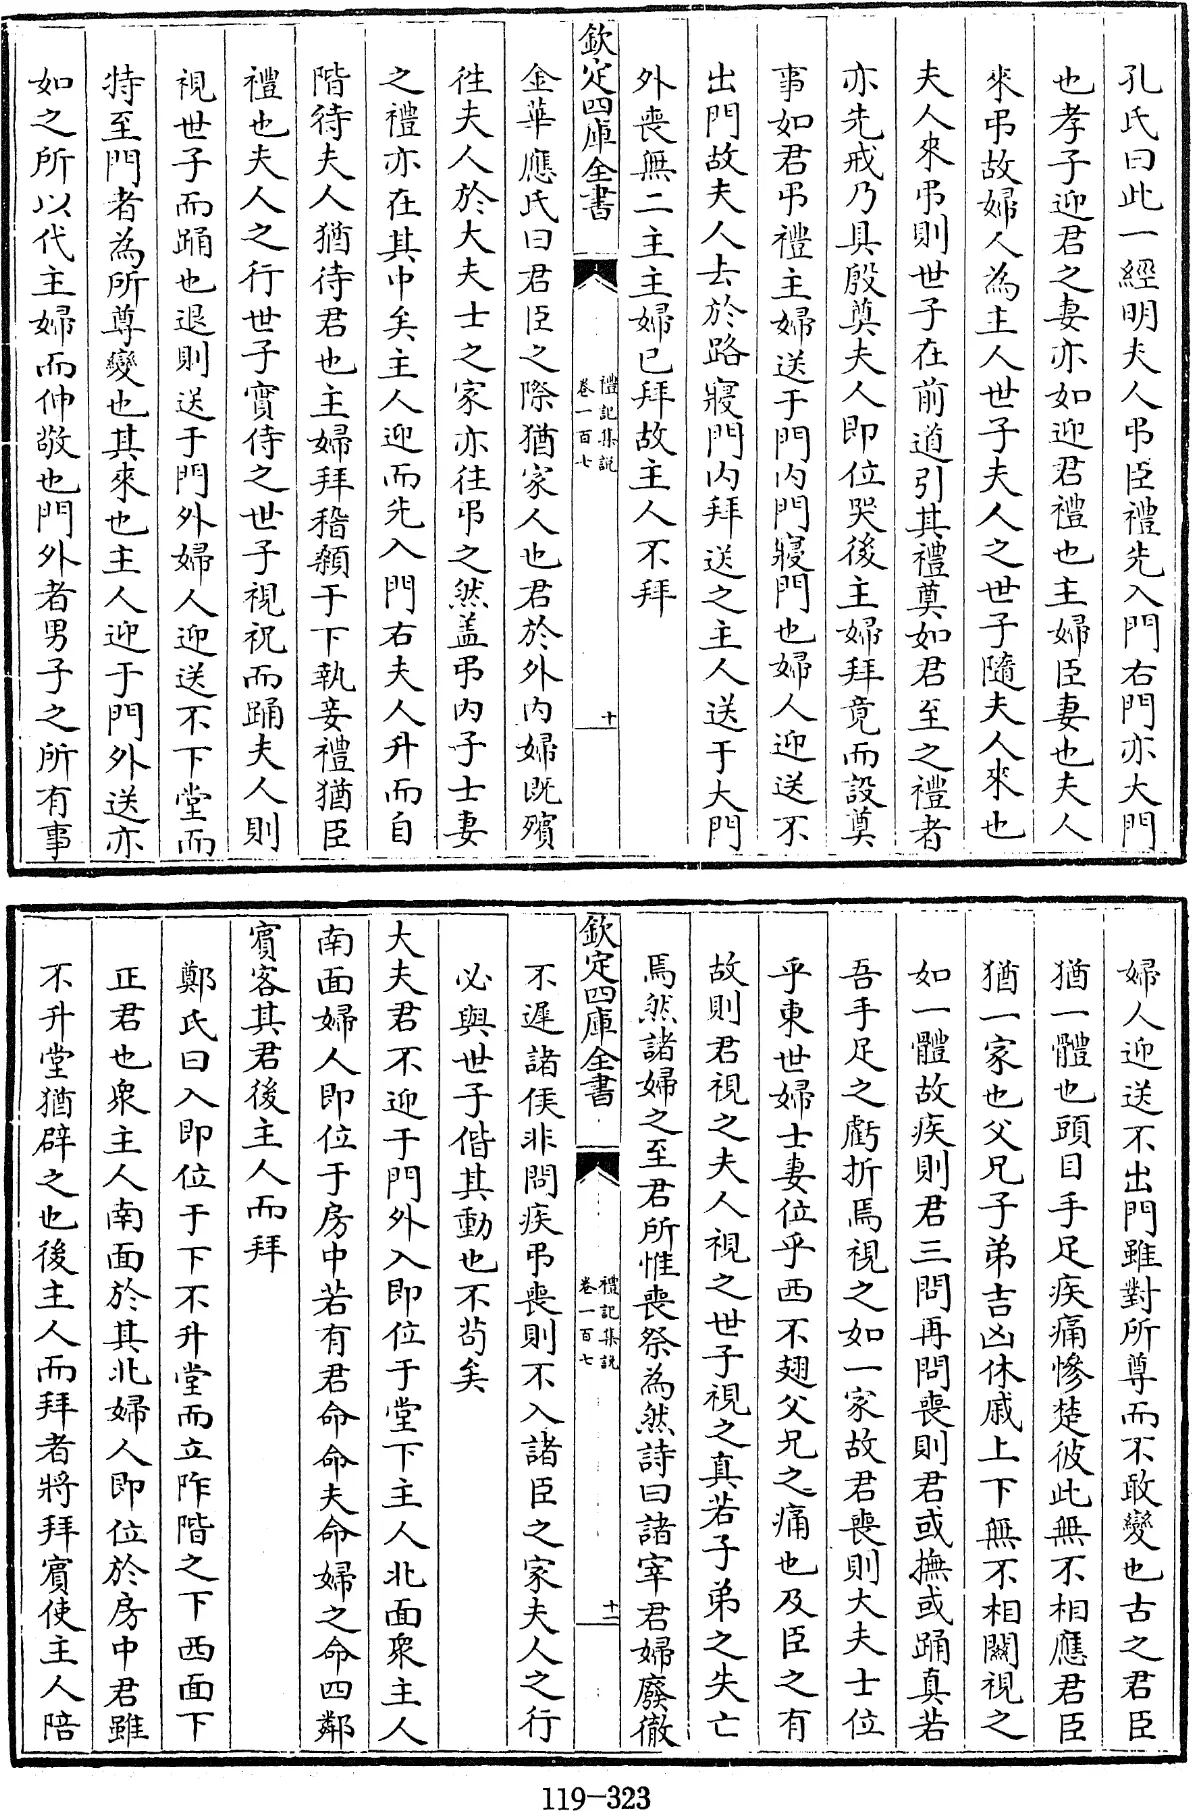 孔氏曰此一經明夫人弔臣禮先入門右門亦大門
也孝子迎君之妻亦如迎君禮也主婦臣妻也夫人
來弔故婦人為主人世子夫人之世子隨夫人來也
夫人來弔則世子在前道引其禮奠如君至之禮者
亦先戒乃具殷奠夫人即位哭後主婦拜竟而設奠
事如君弔禮主婦送于門内門寢門也婦人迎送不
出門故夫人去於路寢門内拜送之主人送于大門
外喪無二主主婦已拜故主人不拜
欽定四庫全書
禮記集説
卷一百七
十
金華應氏曰君臣之際猶家人也君於外内婦既殯
往夫人於大夫士之家亦往弔之然盖弔内子士妻
之禮亦在其中矣主人迎而先入門右夫人升而自
階待夫人猶待君也主婦拜稽顙于下執妾禮猶臣
禮也夫人之行世子實侍之世子視祝而踊夫人則
視世子而踊也退則送于門外婦人迎送不下堂而
特至門者為所尊變也其來也主人迎于門外送亦
如之所以代主婦而伸敬也門外者男子之所有事
婦人迎送不出門雖對所尊而不敢變也古之君臣
猶一體也頭目手足疾痛慘楚彼此無不相應君臣
猶一家也父兄子弟吉凶休戚上下無不相關視之
如一體故疾則君三問再問喪則君或撫或踊真若
吾手足之虧折焉視之如一家故君喪則大夫士位
乎東世婦士妻位乎西不翅父兄之痛也及臣之有
故則君視之夫人視之世子視之真若子弟之失亡
焉然諸婦之至君所惟喪祭為然詩曰諸宰君婦廢徹
欽定四庫全書
禮記集説
卷一百七
十一
不遲諸侯非問疾弔喪則不入諸臣之家夫人之行
必與世子偕其動也不苟矣
大夫君不迎于門外入即位于堂下主人北面衆主人
南面婦人即位于房中若有君命命夫命婦之命四鄰
賓客其君後主人而拜
鄭氏曰入即位于下不升堂而立阼階之下西面下
正君也衆主人南面於其北婦人即位於房中君雖
不升堂猶辟之也後主人而拜者將拜賓使主人陪
119-323